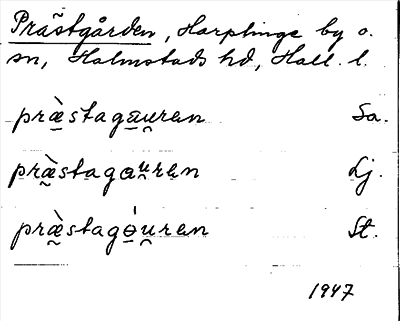 Prästgården, Harplinge by o.
sn, Halmstads hd, Hall. l.
præ̀stagau̯ren Sa.
præ̀stagau̯ren Lj.
præ̀stagɵ́u̯ren St.
1947